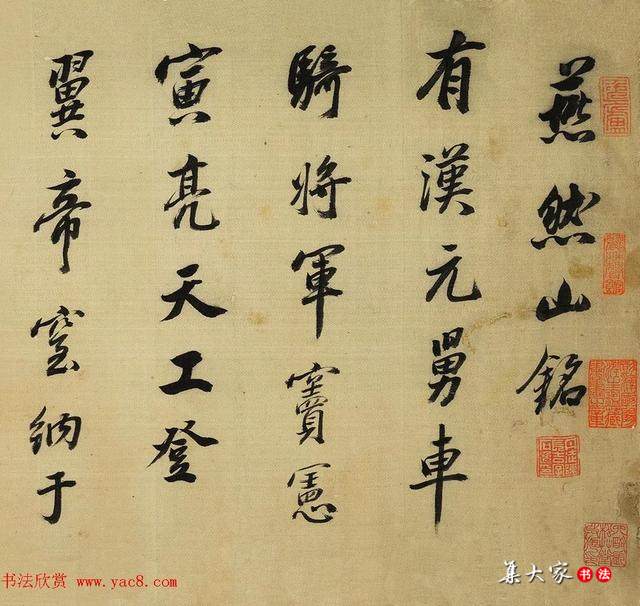 燕然山銘
有漢元舅車
騎將軍竇憲
寅亮天工登
翼帝室納于
书法欣赏 www.yac8.com
集大家书法